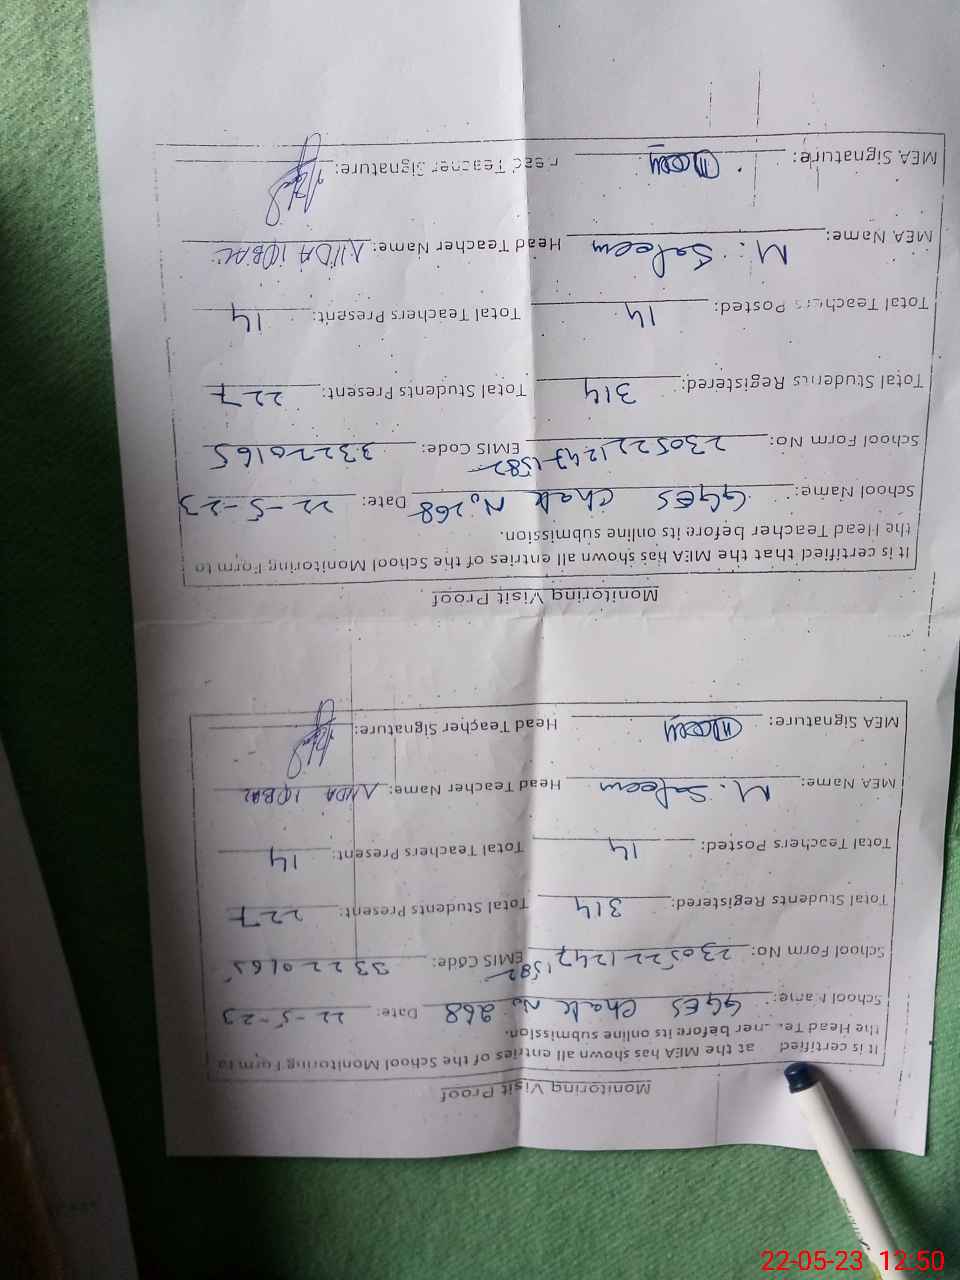 Monitoring Visit Proof
It is certified at the MEA has shown all entries of the School Monitoring Form to
the Head Te ner before its online submission.
School Name: GGES Chak No 268 Date: 22-5-23
School Form No: 2305221247 1582 EMIS Code: 33220165
Total Students Registered: 314 Total Students Present: 227
Total Teachers Posted: 14 Total Teachers Present: 14
MEA Name: M. Saleem Head Teacher Name: NIDA IQBAL
MEA Signature: Head Teacher Signature:
Monitoring Visit Proof
It is certified that the MEA has shown all entries of the School Monitoring Form to
the Head Teacher before its online submission.
School Name: GGES Chak No 268 Date: 22-5-23
School Form No: 2305221243 1582 EMIS Code: 33220165
Total Students Registered: 314 Total Students Present: 227
Total Teachers Posted: 14 Total Teachers Present: 14
MEA Name: M. Saleem Head Teacher Name: NIDA IQBAL
MEA Signature: Head Teacher Signature:
22-05-23 12:50